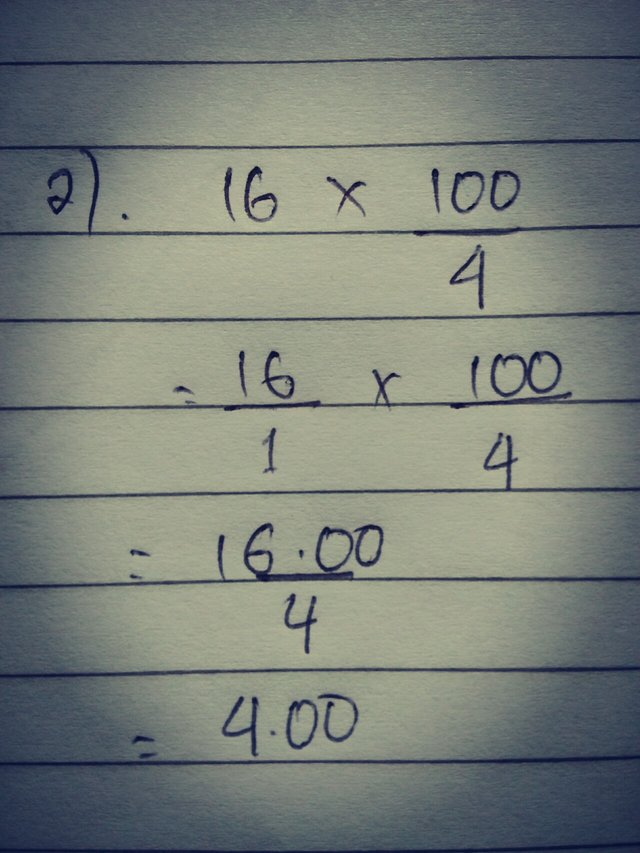 2). 16 × 100/4
= 16/1 × 100/4
= 16.00/4
= 4.00